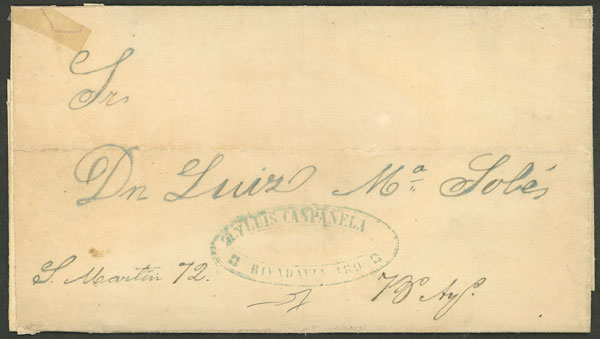 Sr.
Dn Luiz Mª Sobés
CANPANELA
RIVADAVIA
S. Martin 72.
Bs Ays.